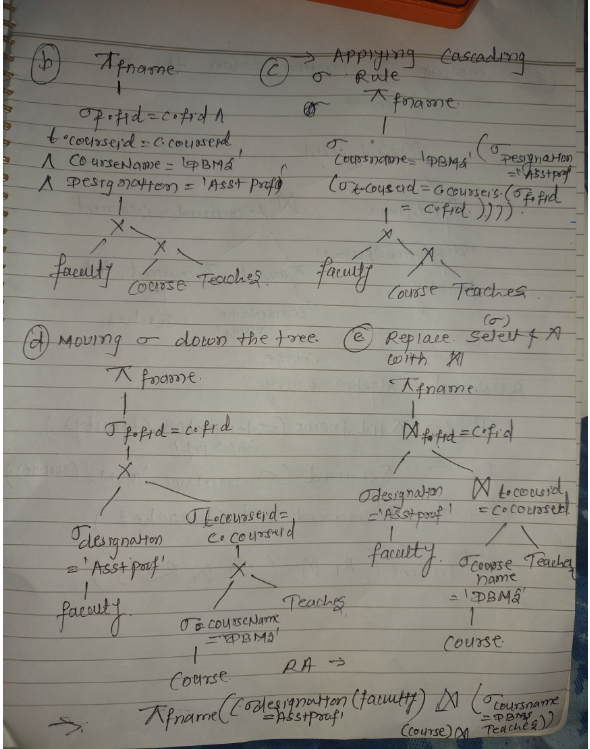 (b) π fname
σ f.fid = c.fid ∧
t.courseid = c.courseid
∧ CourseName = 'DBMS'
∧ Designation = 'Asst Prof'
×
faculty ×
Course Teaches
(c) → Applying Cascading
σ Rule
π fname
σ coursname = 'DBMS' (σ designation = 'Asst prof'
(σ t.couseid = c.courseis (σ f.fid
= c.fid))))
×
faculty ×
Course Teaches
(d) Moving σ down the tree.
π fname
σ f.fid = c.fid
×
σ designation = 'Asst prof'
faculty
σ t.courseid = c.courseid
×
σ courseName = 'DBMS'
Course
Teaches
(e) Replace Select (σ) & ×
with ⋈
π fname
⋈ f.fid = c.fid
σ designation = 'Asst prof'
faculty
⋈ t.cousid = c.courseid
σ course name = 'DBMS'
Course
Teaches
RA →
→ π fname ((σ designation = 'Asst prof' (faculty) ⋈ (σ coursname = 'DBMS' (course) ⋈ Teaches))